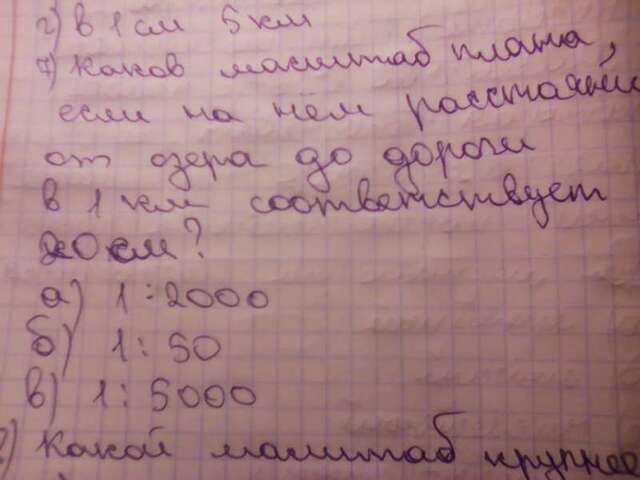 г) в 1 см 5 км
7) Каков масштаб плана,
если на нём расстояние
от озера до дороги
в 1 км соответствует
20 см?
а) 1:2000
б) 1:50
в) 1:5000
Какой масштаб крупнее